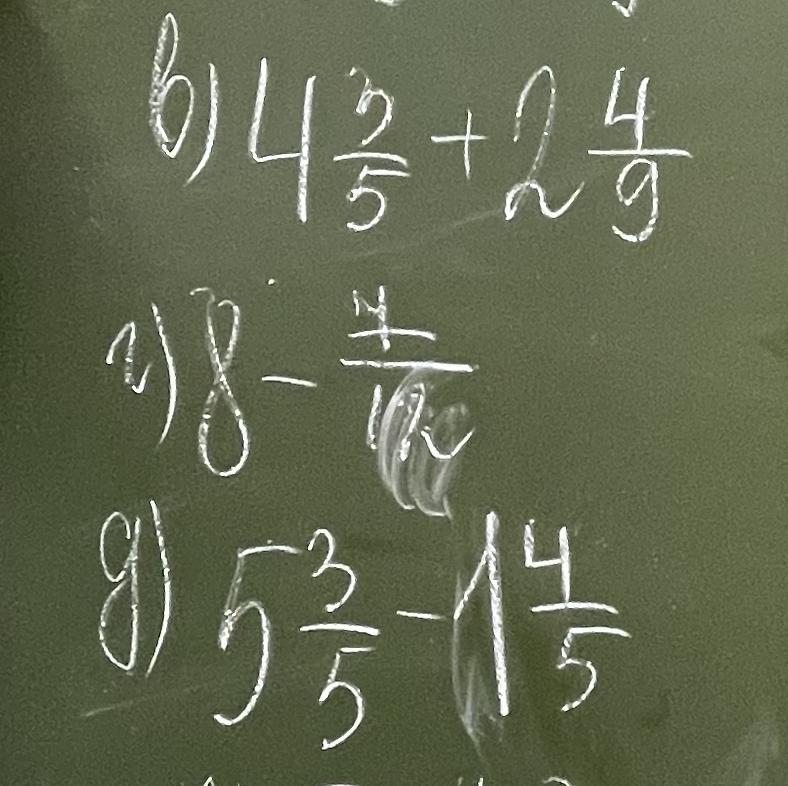 в) 4 3/5 + 2 4/9
г) 8 - 7/12
д) 5 3/5 - 1 4/5